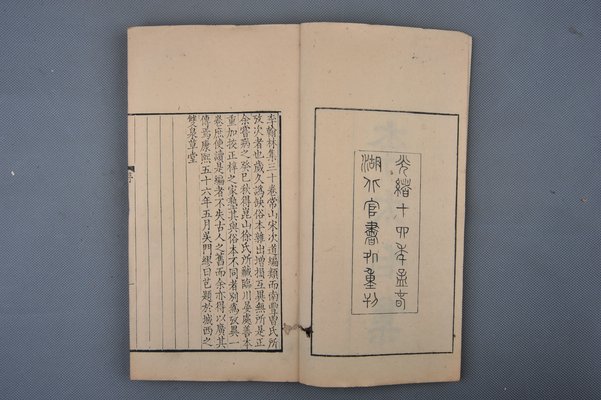 光緒十四年孟春
湖北官書處重刊
李翰林集三十卷常山宋次道編類而南豐曾氏所
攷次者也歲久譌缺俗本雜出增損互異無所是正
余嘗病之癸巳秋得崑山徐氏所藏臨川晏處善本
重加校正梓之家塾其與俗本不同者別爲攷異一
卷庶使讀是編者不失古人之舊而余亦得以廣其
傳焉康熙五十六年五月吳門繆曰芑題於城西之
雙泉草堂